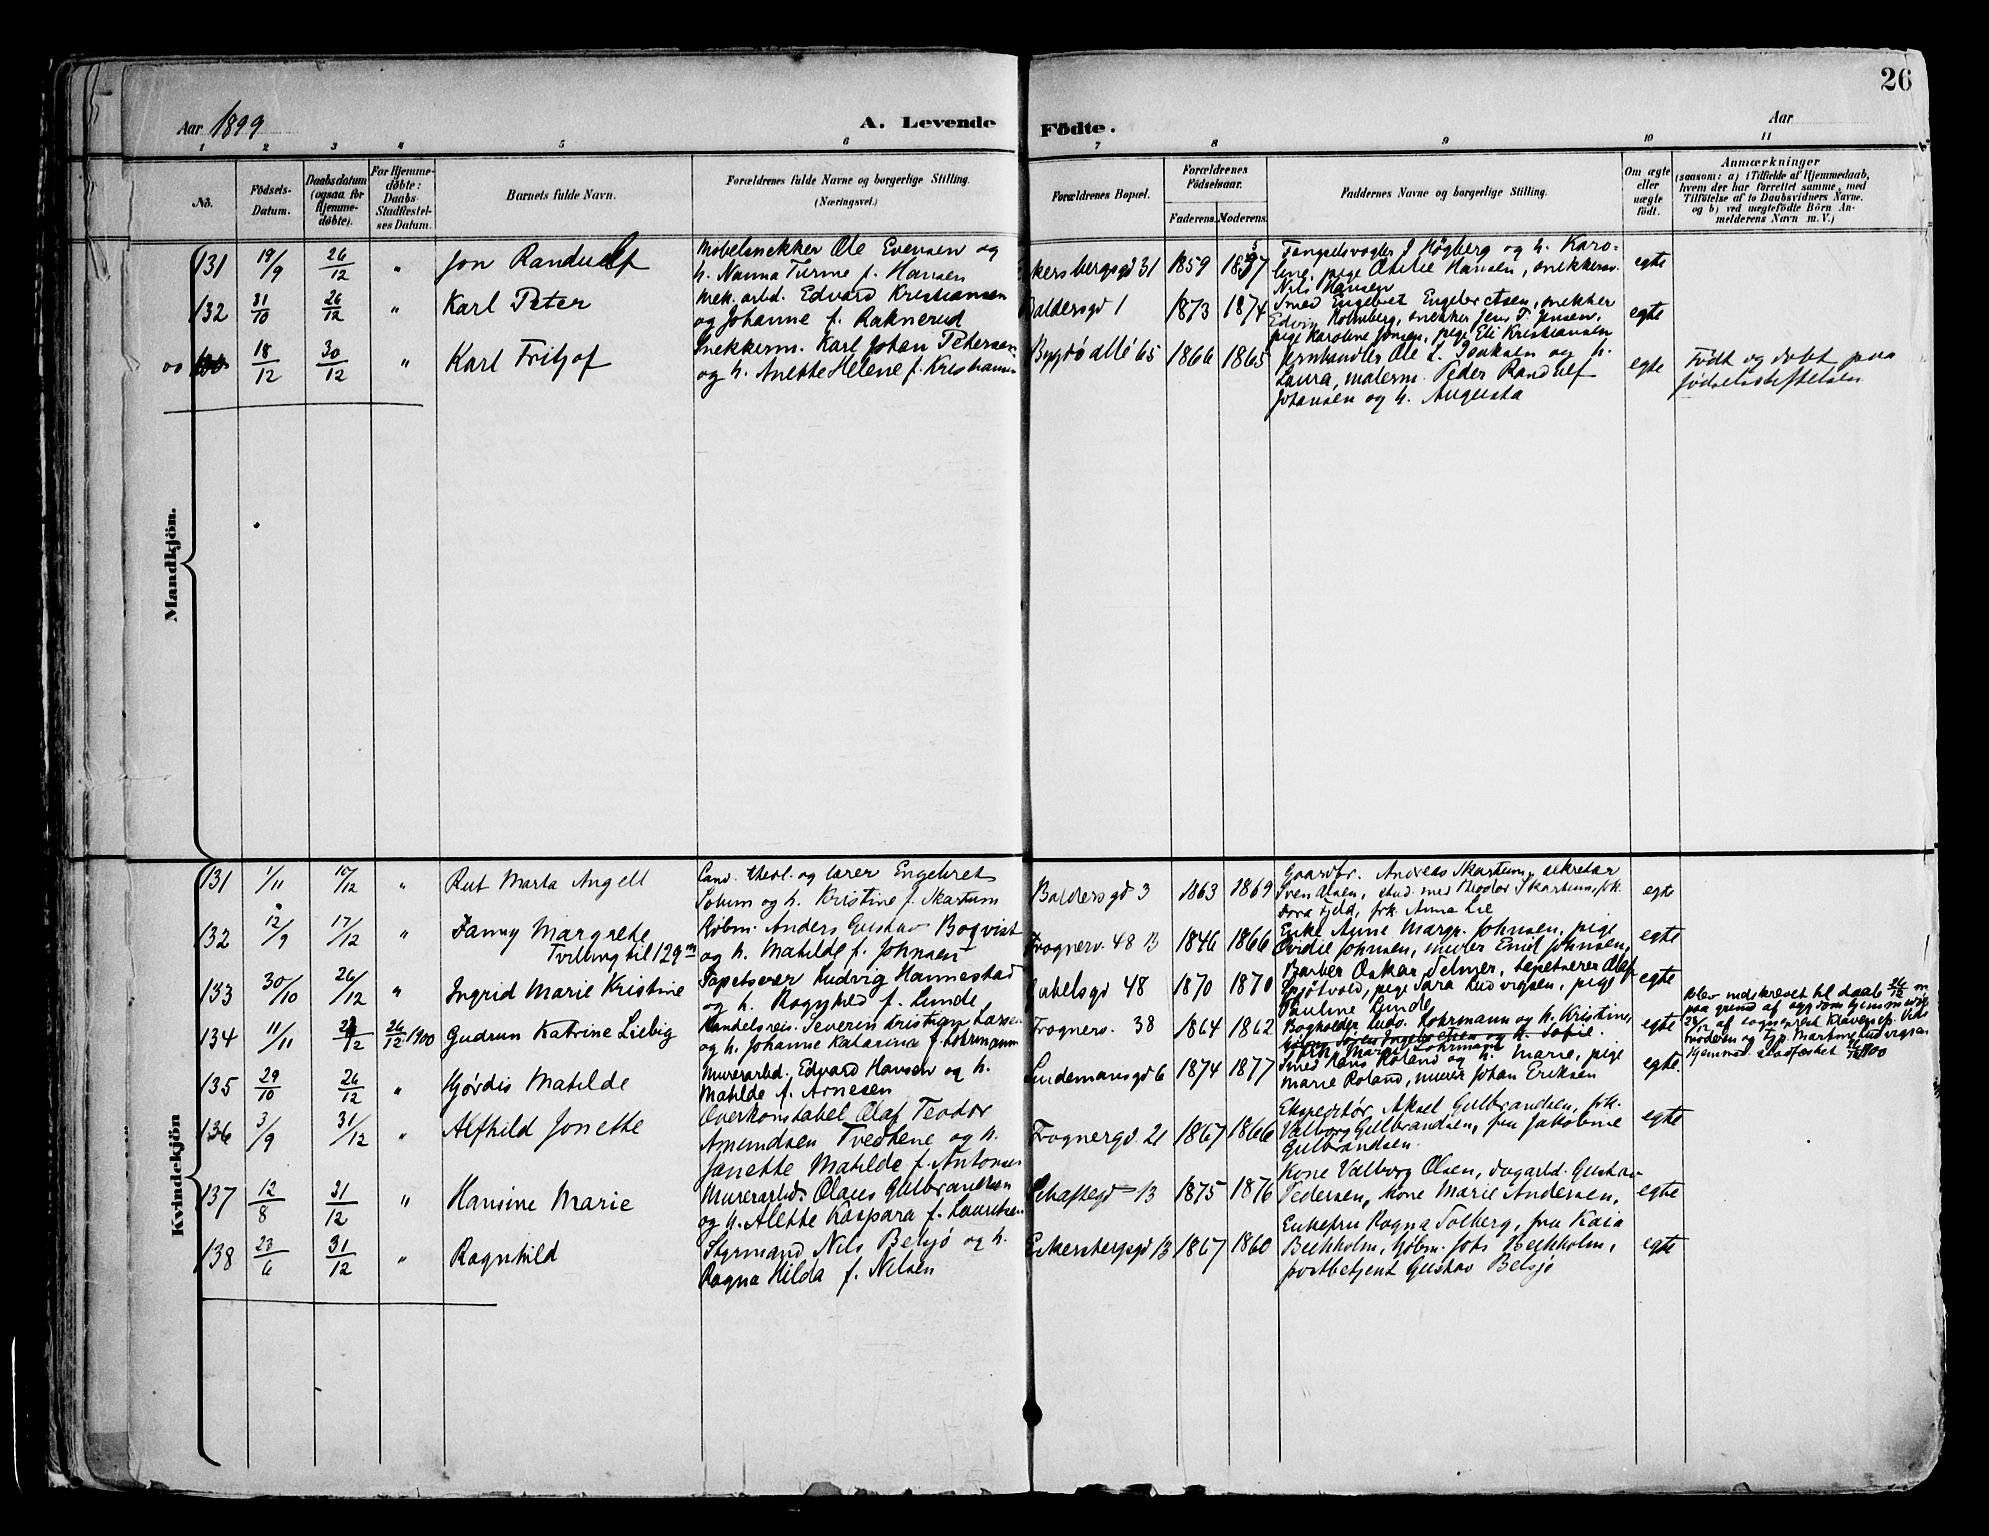 26
Aar 1899 A. Levende Födte. Aar
1 2 3 4 5 6 7 8 9 10 11
No.
Födsels-
Datum.
Daabsdatum
(ogsaa for
Hjemme-
døbte).
For Hjemme-
døbte:
Daabs-
Stadfæstel-
ses Datum.
Barnets fulde Navn.
Forældrenes fulde Navne og borgerlige Stilling.
(Næringsvei.)
Forældrenes Bopæl.
Forældrenes
Fødselsaar.
Faderens. Moderens.
Faddernes Navne og borgerlige Stilling.
Om ægte
eller
uægte
født.
Anmærkninger
(saasom: a) i Tilfælde af Hjemmedaab,
hvem der har forrettet samme, med
Tilføielse af to Daabsvidners Navne,
og b) ved uægtefødte Börn An-
melderens Navn m. V.)
Mandkjön.
131 19/9 26/12 " Jon Randulf
Møbelsnekker Ole Evensen og
h. Nanna Turine f. Hansen
Ekersbergsgd 31 1859
Fængselsvogter J Høgberg og h. Karo-
line, pige Otilie Hansen, snekkersv.
Nils Hansen
egte
132 31/10 26/12 " Karl Peter
Mek. arbd. Edvard Kristiansen
og Johanne f. Raknerud
Baldersgd 1 1873 1874
Smed Engebret Engebretsen, snekker
Edvin Holmberg, snekker Jens T. Jensen,
pige Karoline Jonsen, pige Eli Kristiansen
egte
18/12 30/12 " Karl Fritjof
Snekkerm. Karl Johan Petersen
og h. Anette Helene f. Kristiansen
Bygdø allé 65 1866 1865
Jernhandler Ole L. Isaksen og h.
Laura, malerm. Peder Randulf
Johansen og h. Augusta
egte
Født og døbt paa
fødselsstiftelsen
Kvindekjön
131 1/11 10/12 " Rut Marta Angell
Cand. theol. og lærer Engebret
Solum og h. Kristine f. Skartum
Baldersgd 3 1863 1869
Gaardbr. Andreas Skartum, sekretær
Sven Olsen, stud. med Theodor Skartum, frk.
Dora Fjeld, frk. Anna Lie
egte
132 12/9 17/12 " Fanny Margrete
Tvilling til 129 m
Kjøbm. Anders Gustav Boqvist
og h. Matilde f. Johnsen
Frognerv. 48 B 1846 1866
Enke Anne Margr. Johnsen, pige
Ovidie Johnsen, murer Emil Johnsen,
egte
133 30/10 26/12 " Ingrid Marie Kristine
Tapetserer Ludvig Hannestad
og h. Ragnhild f. Lunde
Gabelsgd 48 1870 1870
Barber Oskar Selmer, tapetserer Olaf
Spjøtvold, pige Sara Ludvigsen, pige
Pauline Lunde
egte
134 11/11 26/12 1900 Gudrun Katrine Liebig
Handelsreis. Severin Kristian Larsen
og h. Johanne Katarina f. Lohrmann
Frognerv. 38 1864 1862
Bogholder Ludv. Lohrmann og h. Kristine,
frk. Margit Lohrmann
egte
Blev indskrevet til daab 26/12 m.
paa grund af sygdom hjemmedøbt
28/12 af sogneprest Klaveness. Vidn.
moderen og frp. Martine Ludvigsen
Hjemmed. stadfæstet
135 29/10 26/12 " Hjørdis Matilde
Murerarbd. Edvard Hansen og h.
Matilde f. Arnesen
Lindemansgd 6 1874 1877
Smed Hans Roland og h. Marie, pige
Marie Roland, murer Johan Eriksen
egte
136 3/9 31/12 " Alfhild Jonette
Overkonstabel Olaf Teodor
Amundsen Tvethene og h.
Janette Matilde f. Antonsen
Frognergd 21 1867 1866
Ekspeditør Aksel Gulbrandsen, frk.
Valborg Gulbrandsen, fru Jakobine
Gulbrandsen
egte
137 12/8 31/12 " Hansine Marie
Murerarbd. Olaus Gulbrandsen
og h. Alette Kaspara f. Lauritsen
Schaftegd 13 1875 1876
Kone Valborg Olsen, dagarbd. Gustav
Pedersen, kone Marie Andersen,
egte
138 23/6 31/12 " Ragnhild
Styrmand Nils Belsjø og h.
Ragna Hilda f. Nilsen
Eckersbergsgd 13 1867 1860
Enkefru Ragna Solberg, fru Kaia
Beckholm, kjøbm. Johs Beckholm,
postbetjent Gustav Belsjø
egte